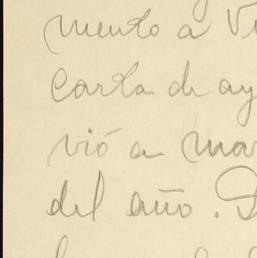 mento a Vi
carta de ay
vió a mar
del año. D